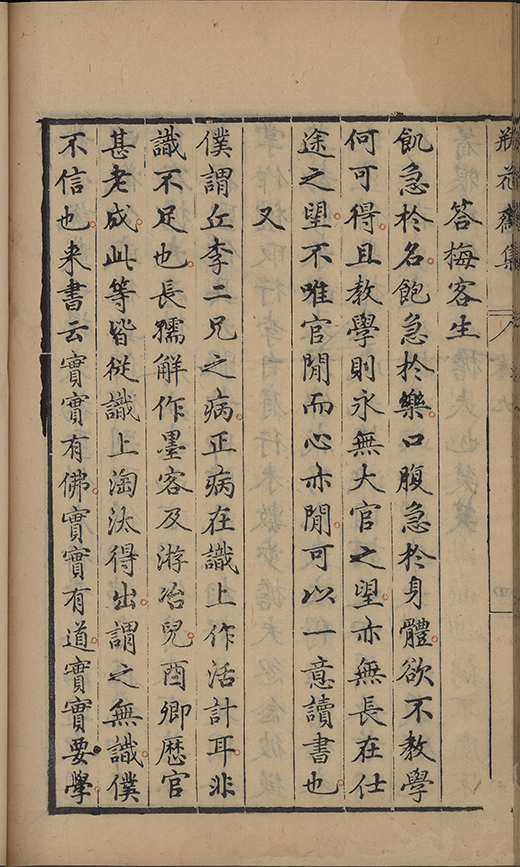 瓶花齋集
答梅客生
飢急於名飽急於樂口腹急於身體欲不教學
何可得且教學則永無大官之望亦無長在仕
途之望不唯官閒而心亦閒可以一意讀書也
又
僕謂丘李二兄之病正病在識上作活計耳非
識不足也長孺解作墨客及游冶兒酉卿歷官
甚老成此等皆從識上淘汰得出謂之無識僕
不信也来書云實實有佛實實有道實實要學